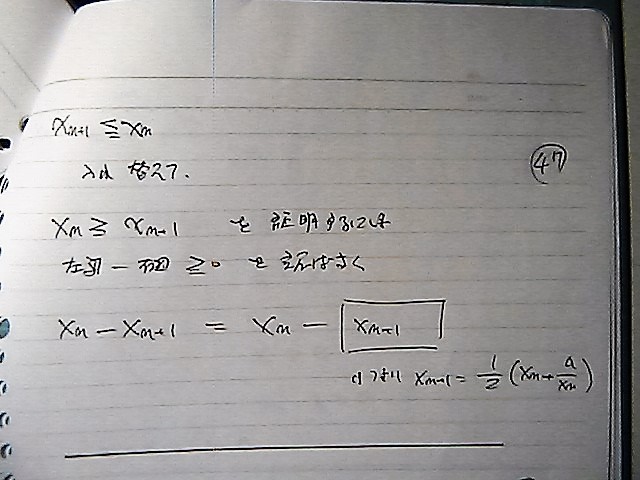 x_{n+1} ≦ x_n
入れ替えて.
㊼
x_n ≧ x_{n+1} を証明するには
左辺 − 右辺 ≧ 0 を言えばよく
x_n − x_{n+1} = x_n − x_{n+1}
x_{n+1} = 1/2 (x_n + a/x_n)